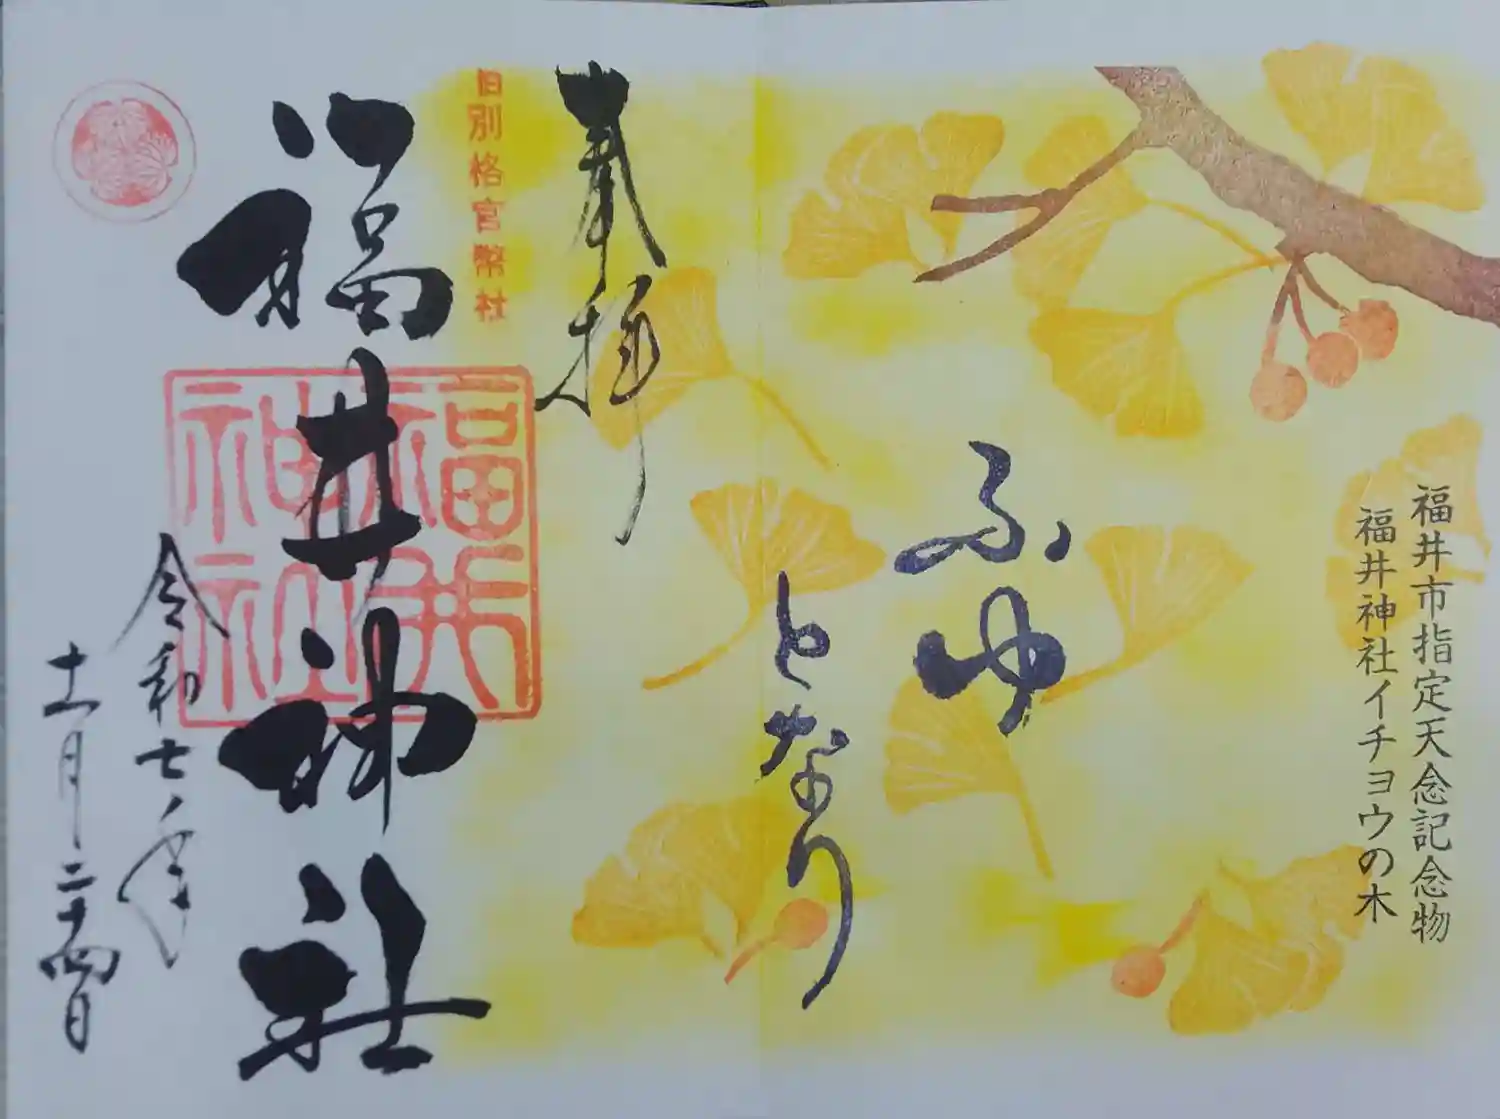 福井市指定天念記念物
福井神社イチョウの木
ふゆ
となり
奉拝
旧別格官幣社
福井神社
福井神社
令和七年
十一月二十四日